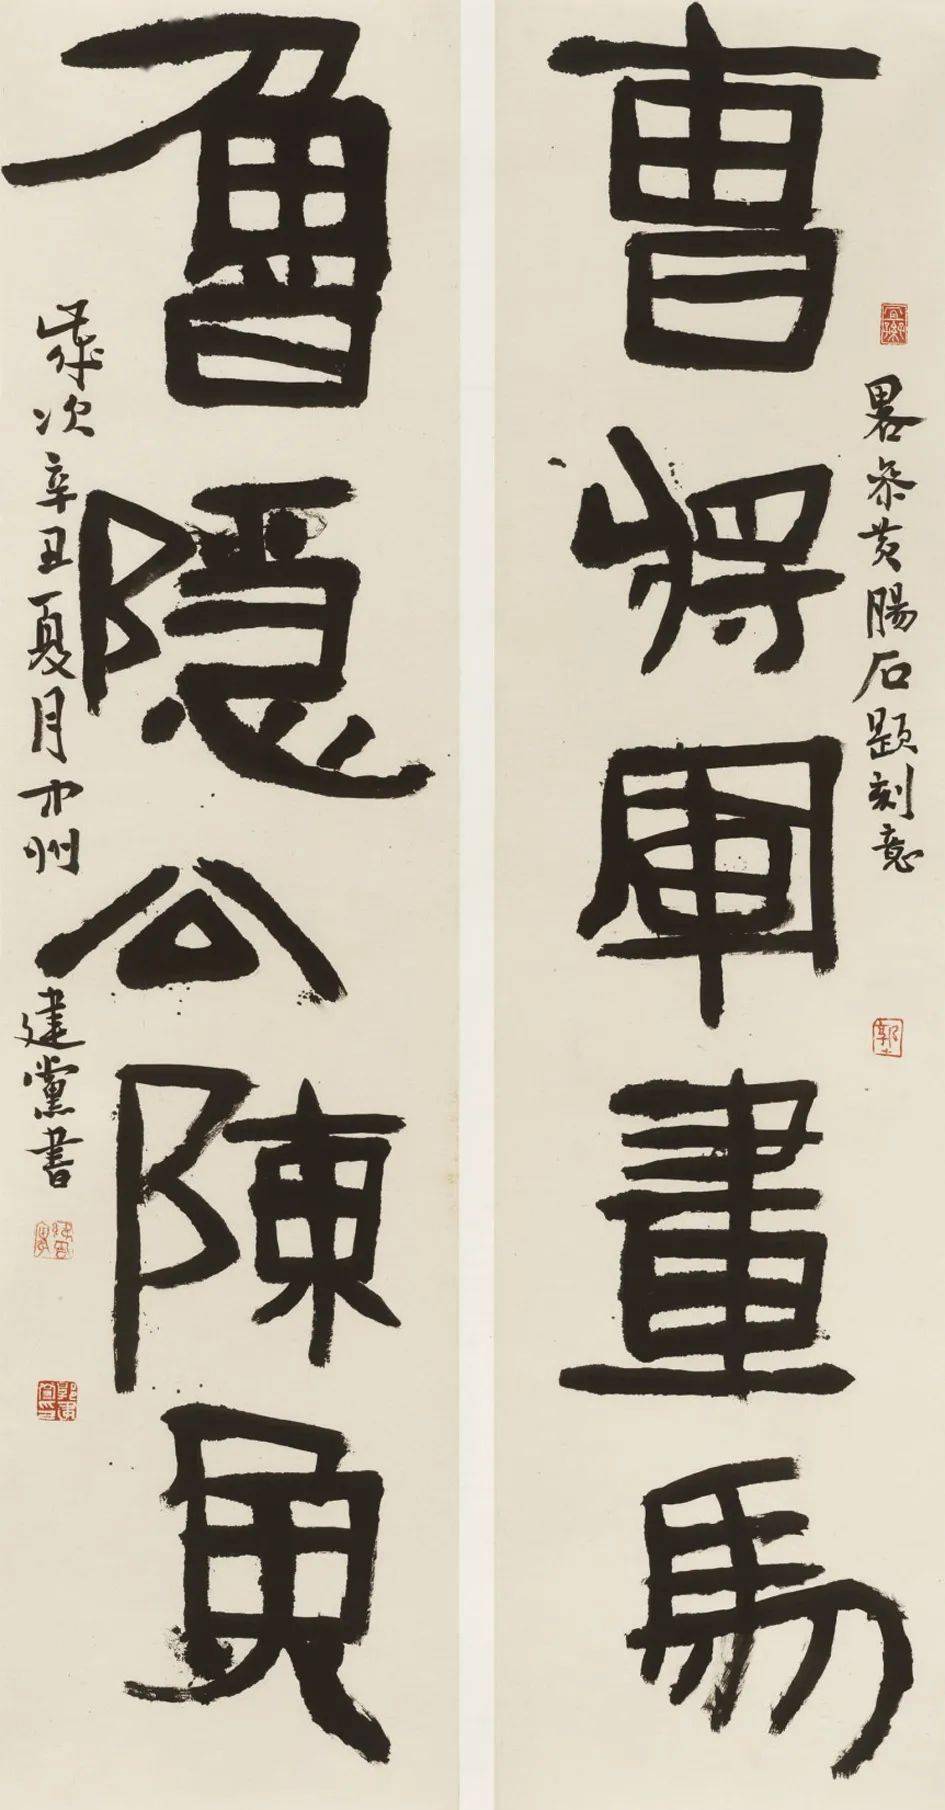 曹將軍畫馬
畧參黃腸石題刻意
魯隱公陳魚
歲次辛丑夏月中州建黨書